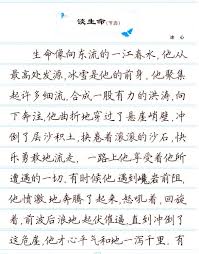 谈生命(节选)
冰心
生命像向东流的一江春水,他从
最高处发源,冰雪是他的前身。他聚集
起许多细流,合成一股有力的洪涛,向
下奔注,他曲折地穿过了悬崖峭壁,冲
倒了层沙积土,挟卷着滚滚的沙石,快
乐勇敢地流走,一路上他享受着他所
遭遇的一切。有时候他遇到巉岩前阻,
他愤激地奔腾了起来,怒吼着,回旋
着,前波后浪地起伏催逼,直到冲倒了
这危崖,他才心平气和地一泻千里。有